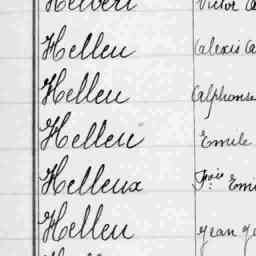 Helbert Victor
Helleu Alexis
Helleu Alphonse
Helleu Emile
Helleux Fois Emi
Helleu Jean